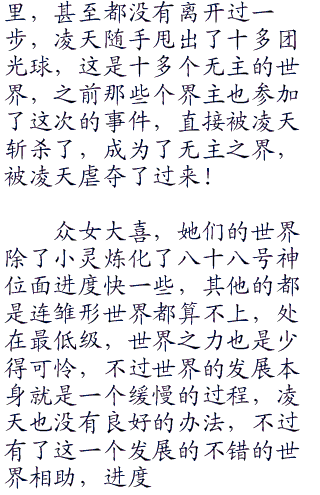 里，甚至都没有离开过一
步，凌天随手甩出了十多团
光球，这是十多个无主的世
界，之前那些个界主也参加
了这次的事件，直接被凌天
斩杀了，成为了无主之界，
被凌天虐夺了过来！
众女大喜，她们的世界
除了小灵炼化了八十八号神
位面进度快一些，其他的都
是连雏形世界都算不上，处
在最低级，世界之力也是少
得可怜，不过世界的发展本
身就是一个缓慢的过程，凌
天也没有良好的办法，不过
有了这一个发展的不错的世
界相助，进度